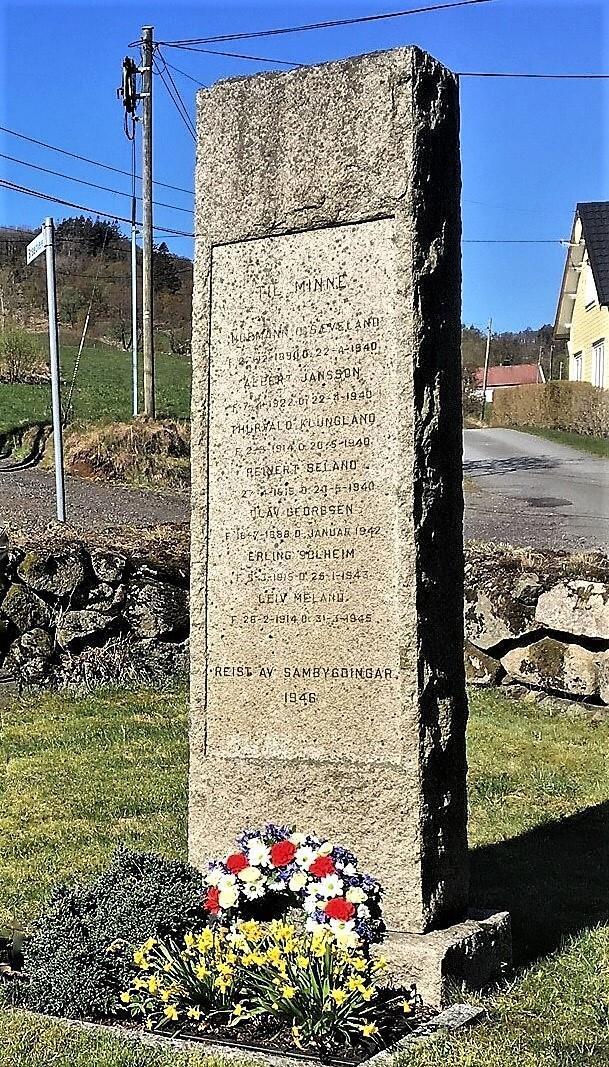 TIL MINNE
D. SÆVELAND
1890 D. 22-4-1940
ALBERT JANSSON
1922 D. 22-1940
THORVALD KLUNGLAND
F. 1914 D. 20-5-1940
REINERT SELAND
1915 D. 1940
OLAV GEORGSEN
F. 16-7-1898 D. JANUAR 1942
ERLING SOLHEIM
1915 D. 1943
LEIV MELAND
F. 26-2-1914 D. 31-1-1945
REIST AV SAMBYGDINGAR
1946